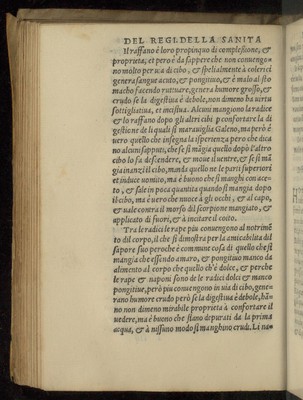 DEL REGI. DELLA SANITA
Il raffano è loro propinquo di complesione, &
proprieta, et pero è da sappere che non conuengo-
no molto per uia di cibo, & spetialmente à colerici
genera sangue acuto, & pongitiuo, & è malo al sto
macho facendo ruttuare, genera humore grosso, &
crudo se la digestiua è debole, non dimeno ha uirtu
sottigliatiua, et incisiua. Alcuni mangiono la radice
& lo raffano dopo gli altri cibi p confortare la di
gestione de li quali si marauiglia Galeno, ma pero è
uero quello che insegna la isperienza pero che dica
no alcuni sapputi, che se si mãgia quello dopò l'altro
cibo lo fa descendere, & moue il uentre, & se si mã
gia inanzi il cibo, manda quello ne le parti superiori
et induce uomito, ma è buono che si mangi con ace-
to, & sale in poca quantita quando si mangia dopo
il cibo, ma è uero che nuoce à gli occhi, & al capo,
& uale contra il morso dil scorpione mangiato, &
applicato di fuori, & à incitare il coito.
Tra le radici le rape piu conuengono al notrimē
to dil corpo, il che si dimostra per la amicheuolita del
sapore suo peroche è commune cosa di quello che si
mangia che essendo amaro, & pongitiuo manco da
alimento al corpo che quello ch'è dolce, & perche
le rape & naponi sono de le radici dolci & manco
pongitiue, però piu conuengono in uia di cibo, gene-
rano humore crudo però se la digestiua è debole, hā-
no non dimeno mirabile proprieta à confortare il
uedere, ma è buono che siano depurati da la prima
acqua, & à nissuno modo si manghino crudi. Li na-